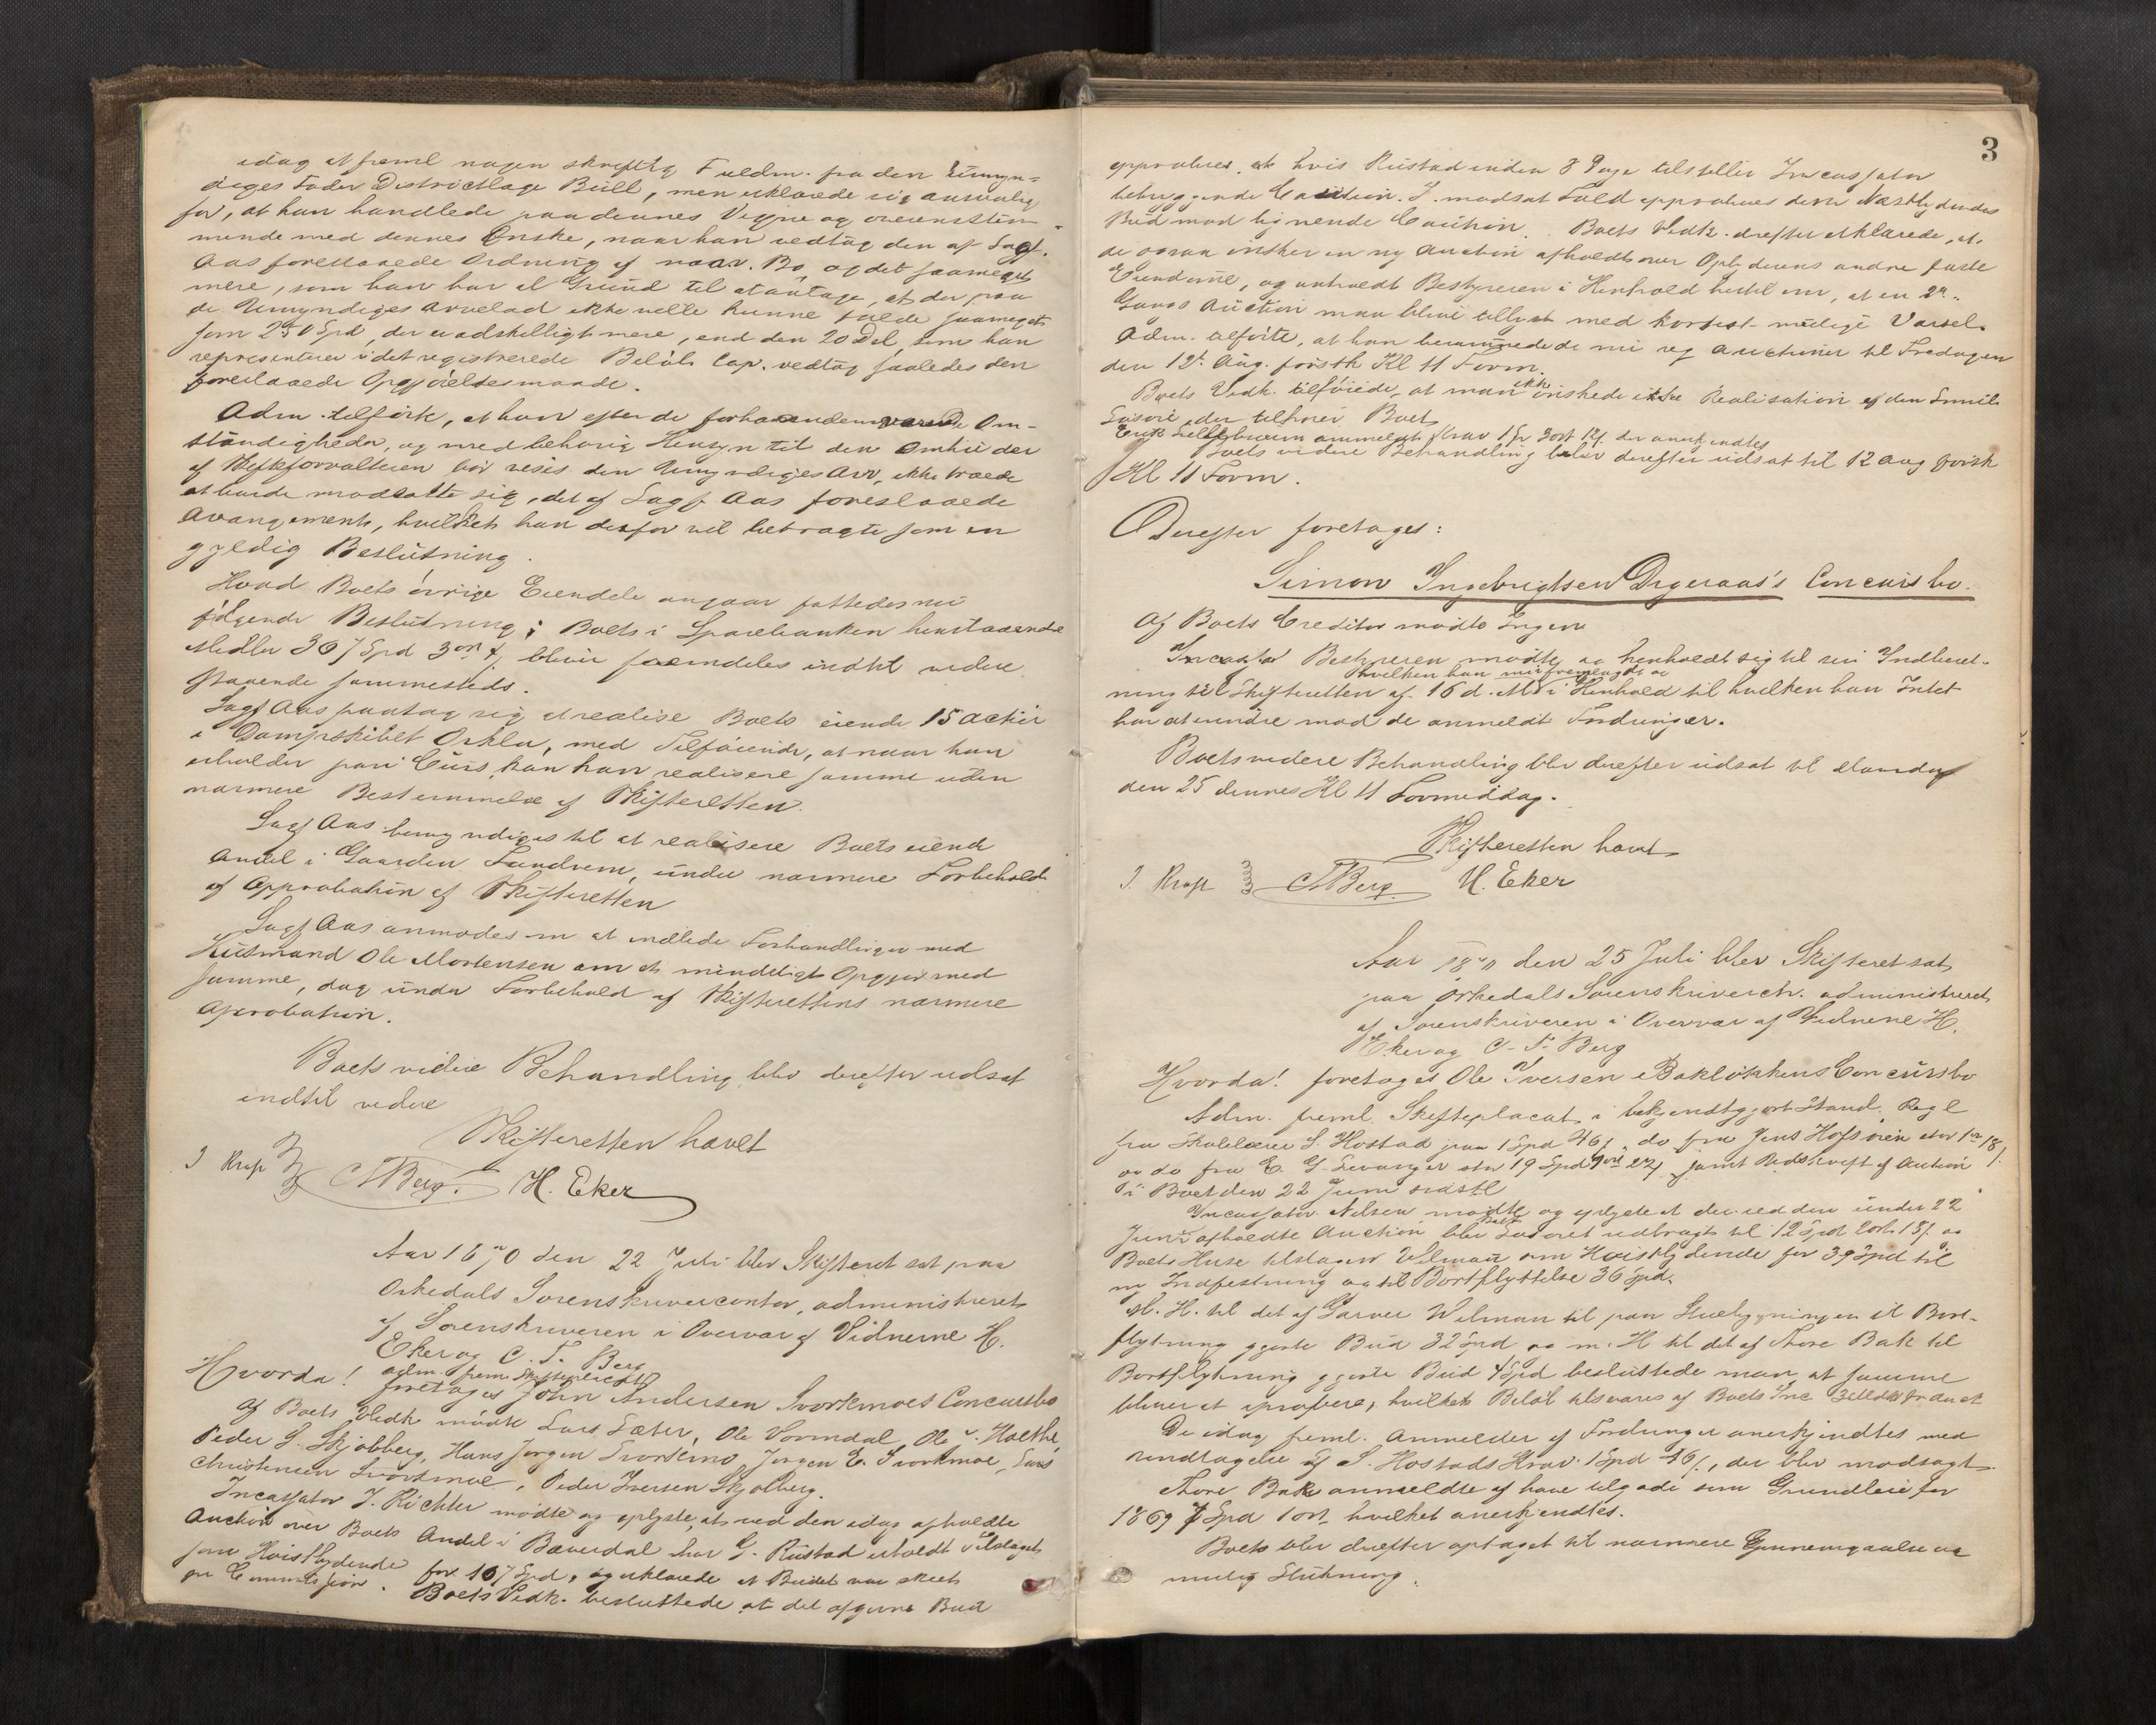 idag at freml nogen skriftlig Fuldm. fra den Umyn=
diges Fader Districtlæge Bull, men erklærede sig ansvarlig
for, at han handlede paa dennes Vegne og overensstem
mende med dennes Ønske, naar han vedtog den af Sagf.
Aas foreslaaede Ordning af nærv. Bo, og det saameget
mere, som han har al Grund til at antage, at der paa
de Umyndiges Arvelod ikke vilde kunne falde saameget
som 250 Spd, der er adskilligt mere, end den 20 Del, som han
representerer i det registrerede Beløb. Cap. vedtog saaledes den
foreslaaede Opgjørelsesmaade.
Adm. tilførte, at han efter de forhaandenværende Om-
stændigheder, og med behørig Hensyn til den Omhu der
af Skifteforvalteren bør vises den Umyndiges Arv, ikke troede
at burde modsætte sig, det af Sagf Aas foreslaaede
Arangement, hvilket han derfor vil betragte som en
gyldig Beslutning.
Hvad Boets øvrige Eiendele angaar fattedes nu
følgende Beslutning; Boets i Sparebanken henstaaende
Midler 367 Spd 3 ort blive fremdeles indtil videre
staaende sammesteds.
Sagf Aas paatog sig at realise Boets eiende 15 Actier
i Dampskibet Orkla, med Tilføiende, at naar han
erholder pari Curs, kan han realisere samme uden
nærmere Bestemmelse af Skifteretten.
Sagf Aas bemyndiges til at realisere Boets eiende
Andel i Gaarden Landrem, under nærmere Forbehold
af Approbation af Skifteretten
Sagf Aas anmodes om at indlede Forhandlinger med
Huusmand Ole Mortensen om et mindeligt Opgjør med
samme, dog under Forbehold af Skifterettens nærmere
Aprobation.
Boets videre Behandling blev derefter udsat
indtil videre
Skifteretten hævet
J Krap CTBerg. H. Eker
Aar 1870 den 22 Juli blev Skifteret sat paa
Orkedals Sorenskrivercontor, administreret
af Sorenskriveren i Overvær af Vidnerne H.
Eker og C. T. Berg
Hvorda! adm frem Skifteplacat
foretages John Andersen Svorkmoes Concursbo
Af Boets Vedk mødte Lars Sæter, Ole Vormdal, Ole Hoelthe,
Peder S. Skjølberg, Hans Jørgen Svorkmo Jørgen E. Svorkmoe, Lars
Christensen Svorkmoe, Peder Iversen Skjølberg.
Incassator J. Richter mødte og oplyste, at ved den idag afholdte
Auction over Boets Andel i Bæverdal har G. Rustad erholdt Tilslaget
som Høistbydende for 107 Spd, og erklærede at Budet var skeet
pr Commission. Boets Vedk. besluttede at det afgivne Bud
3
approberes, at hvis Rustad inden 8 Dage tilstiller Incassator
betryggende Caution. I modsat Fald approberes den Næstbydendes
Bud mod lignende Caution. Boets Vedk. derefter erklærede, at
de ogsaa ønsker en ny Auction afholdt over Opbyderens andre faste
Eiendomme, og anholdt Bestyreren i Henhold hertil om, at en 2n.
Gangs Auction maa blive tillyst med kortest-mulige Varsel.
Adm. tilførte, at han berammede de nu reg Auctioner til Fredagen
den 12t Aug. førstk Kl 11 Form.
Boets Vedk. tilføiede, at man ikke ønskede Realisation af den
der tilhører Boet
Erik anmeldte Krav 1 Sp 3 ort 12 s. der anerkjendtes
Boets videre Behandling blev derefter udsat til 12 Aug førstk
Kl 11 Form.
Derefter foretages:
Simon Ingebrigtsen Drgeraas's Concursbo.
Af Boets Creditor mødte Ingen
Incassator Bestyreren mødte og henholdt sig til sin Indberet-
hvilken han nu fremlagde og
ning til Skifteretten af 16 d. Md i Henhold til hvilken han Intet
har at erindre mod de anmeldte Fordringer.
Boets videre Behandling blev derefter udsat til Mandag
den 25 dennes Kl 11 Formiddag.
Skifteretten hævet
J. Krap CTBerg H. Eker
Aar 1870 den 25 Juli blev Skifteret sat
paa Orkedals Sorenskriverctr. administreret
af Sorenskriveren i Overvær af Vidnerne H.
Eker og C. T. Berg
Hvorda! foretages Ole Iversen Bakløkkens Concursbo
Adm. freml. Skifteplacat i bekjendtgjort Stand. Regl
fra Skolelærer S. Hostad paa 1 Spd 46 s, do fra Jens Hofsøien stor 1 ort 18 s.
og do fra E. G. Levanger stor 19 Spd 4 ort 22 s samt Udskrift af Auction
i Boet den 22 Juni sidstl
Incassator Nilsen mødte og oplyste at der ved den under 22
Juni afholdte Auction blev Løsøret udbragt til 12 Spd 2 ort 18 s. og
Boets Huse tilslagen Velman som Høistbydende for 39 Spd til
ny Indfestning og til Bortflyttelse 36 Spd.
M. H. til det af Garver Wilman til paa Stuebygningen til Bort-
flytning gjorte Bud 32 Spd og m. H til det af Thore Bak til
Bortflytning gjorte Bud 4 Spd besluttede man at samme
bliver at aprobere, hvilket Beløb tilsvares af Boets Inc
De idag freml. Anmelder af Fordringer anerkjendtes med
Undtagelse af S. Hostads Krav 1 Spd 46 s, der blev modsagt.
Thore Bak anmeldte at have tilgode som Grundleie for
1869 7 Spd 1 ort hvilket anerkjendtes.
Boets blev derefter optaget til nærmere Gjennemgaaelse og
mulig Slutning.